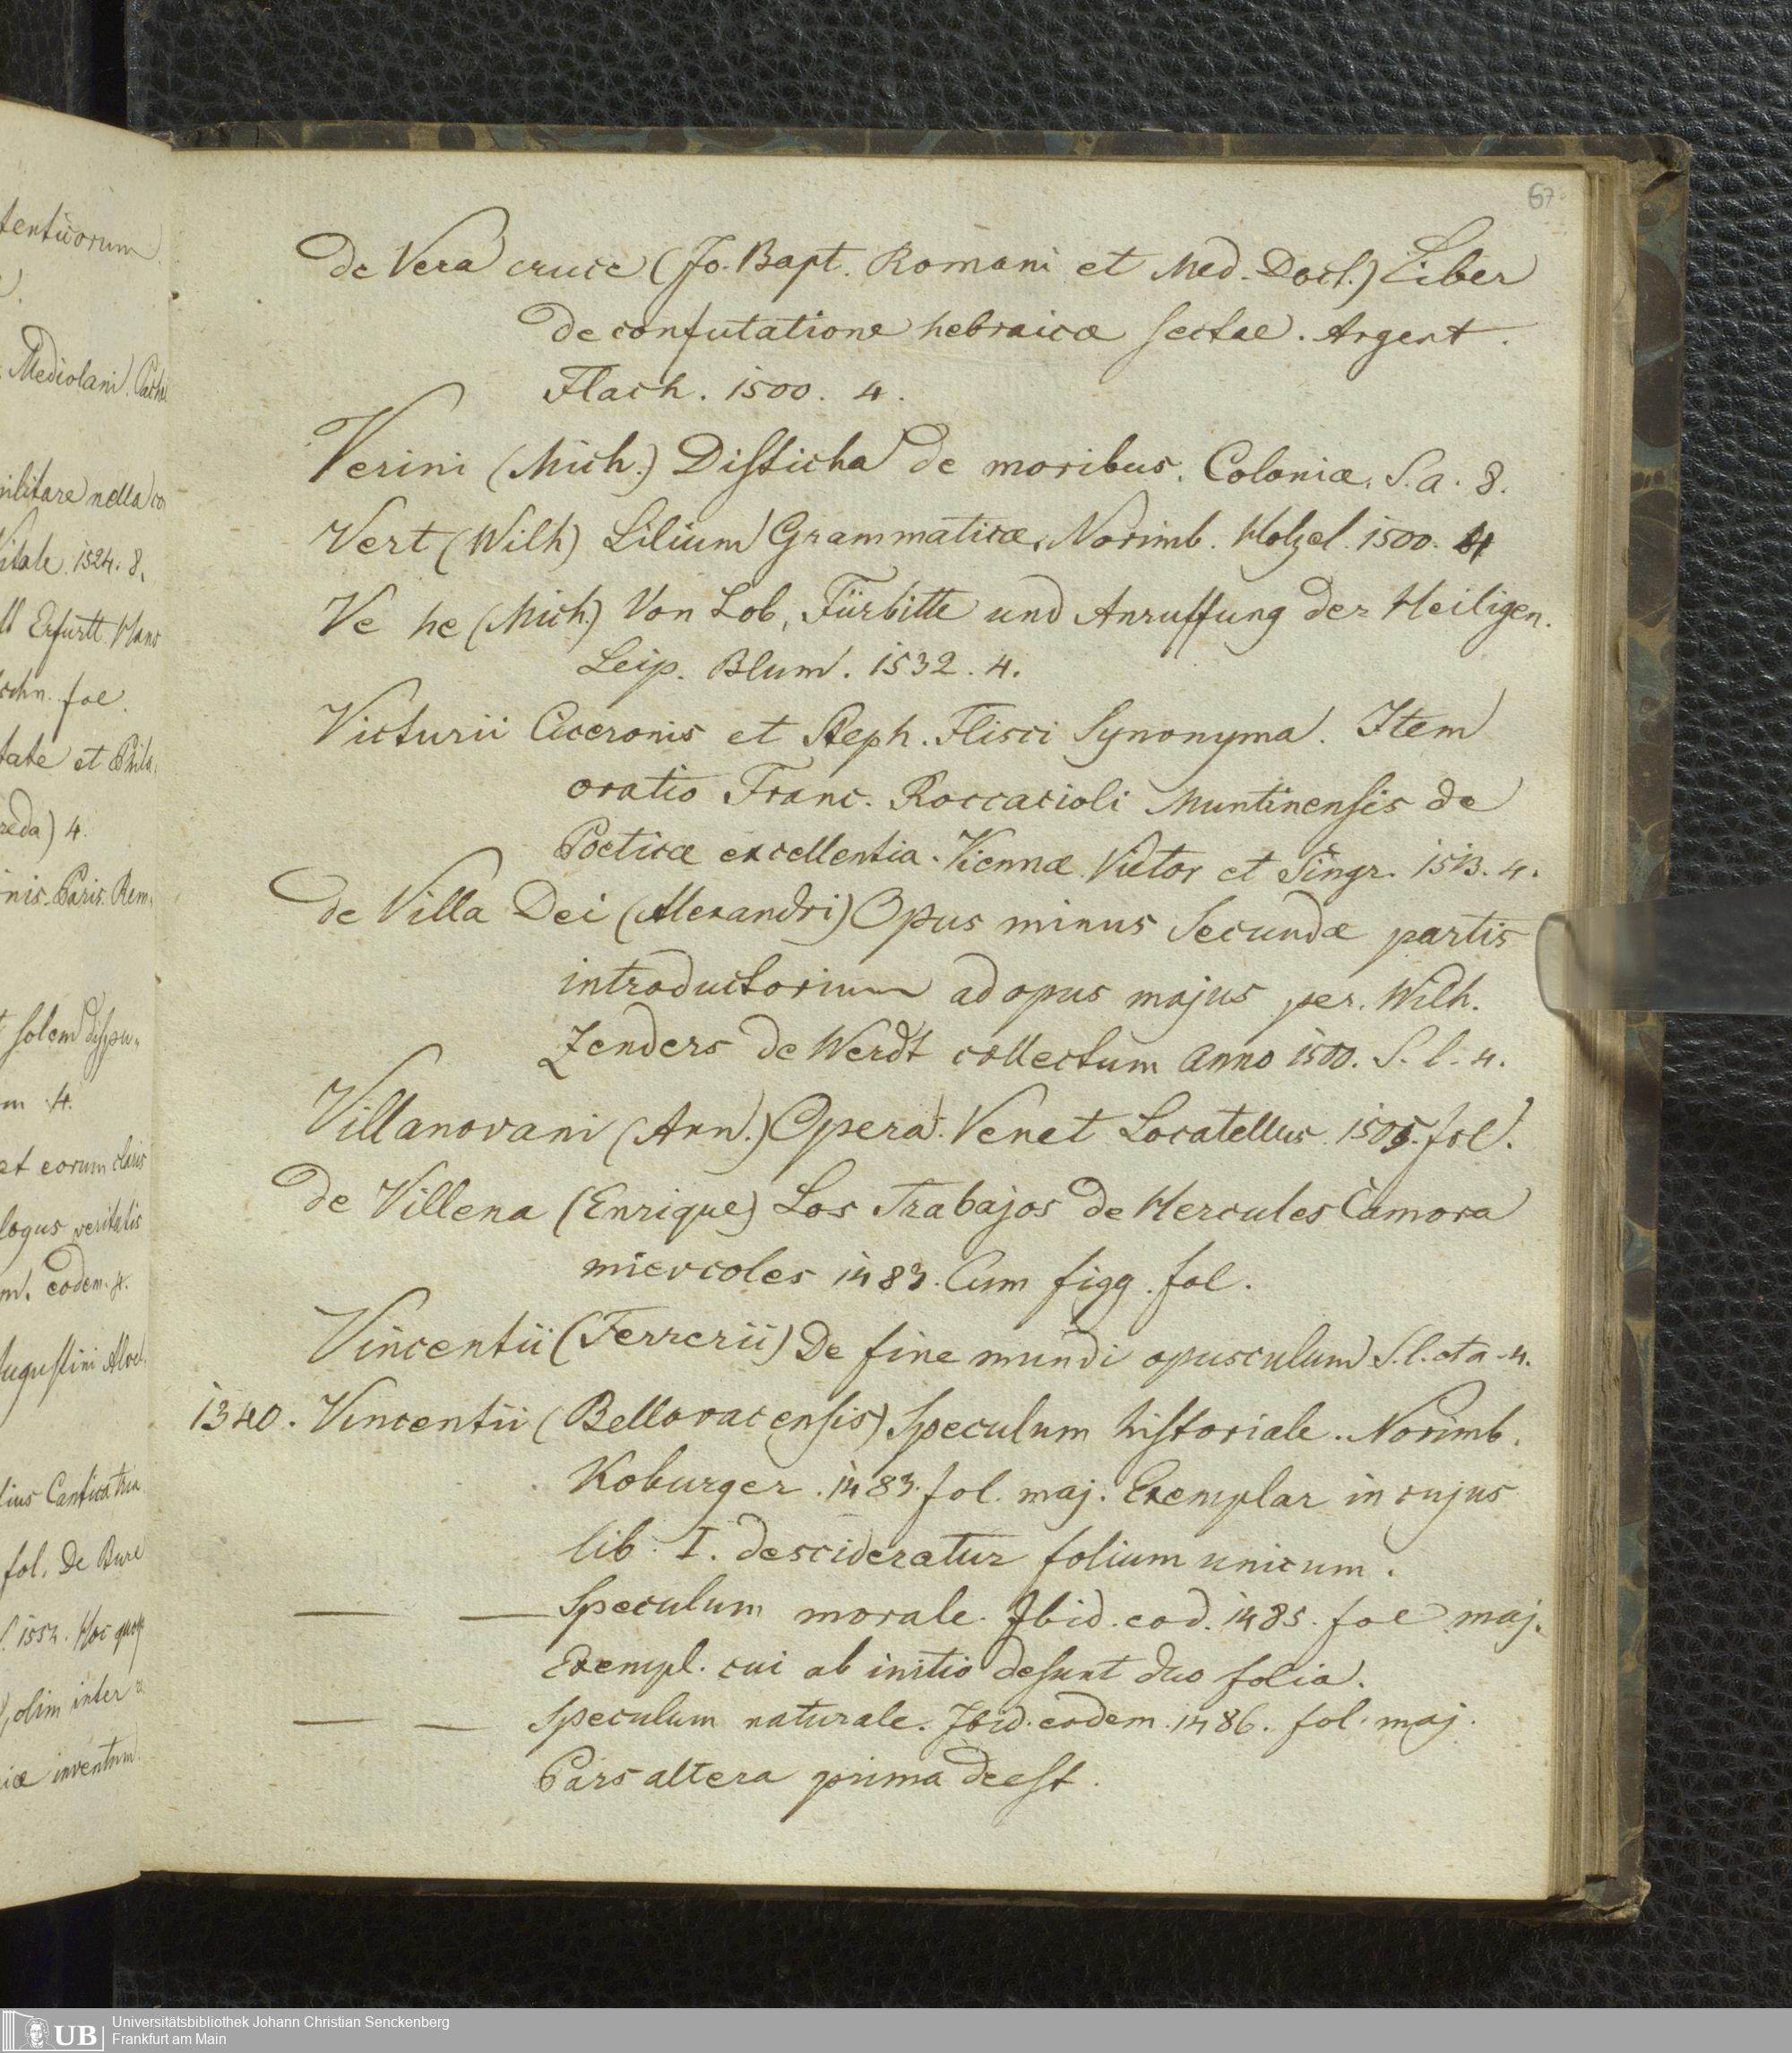 67
de Vera cruce (Jo. Bapt. Romani et Med. Doct.) Liber
de confutatione hebraicæ sectae. Argent.
Flach. 1500. 4.
Verini (Mich.) Disticha de moribus. Coloniæ. S. a. 8.
Vert (Wilh) Lilium Grammaticæ. Norimb. Holzel. 1500. 4
Ve he (Mich.) Von Lob, Fürbitte und Anruffung der Heiligen.
Leip. Blum. 1532. 4.
Victurii Ciceronis et Steph. Flisci Synonyma. Item
oratio Franc. Roccacioli Muntinensis de
Poeticæ excellentia. Viennæ. Victor et Singr. 1513. 4.
de Villa Dei (Alexandri) Opus minus Secundæ partis
introductorium ad opus majus per. Wilh.
Zenders de Werdt collectum anno 1500. S. l. 4.
Villanovani (Arn.) Opera. Venet Locatellus. 1505. fol.
de Villena (Enrique) Los Trabajos de Hercules Camora
miercoles 1483. Cum figg. fol.
Vincentii (Ferrerii) De fine mundi opusculum S. l. et a. 4.
1340. Vincentii (Bellovacensis) Speculum historiale. Norimb.
Koburger. 1483. fol. maj. Exemplar in cujus
lib. I. descideratur folium unicum.
— — Speculum morale. Ibid. eod. 1485. fol maj.
Exempl. cui ab initio desunt duo folia.
— — Speculum naturale. Ibid. eodem. 1486. fol. maj.
Pars altera prima deest.
tenticorum
Mediolani.
militare nella
Vitale. 1524. 8.
Erfurtt. Hans
fol.
tate et Phila
reda) 4.
nis. Paris. Rem.
solem dispu
m 4.
et eorum claris
logus veritatis
m. eodem. 4.
Augustini
lius Cantica
fol. De Bure
1552. Hoc quoq
olim inter
iæ inventum
UB
Universitätsbibliothek Johann Christian Senckenberg
Frankfurt am Main